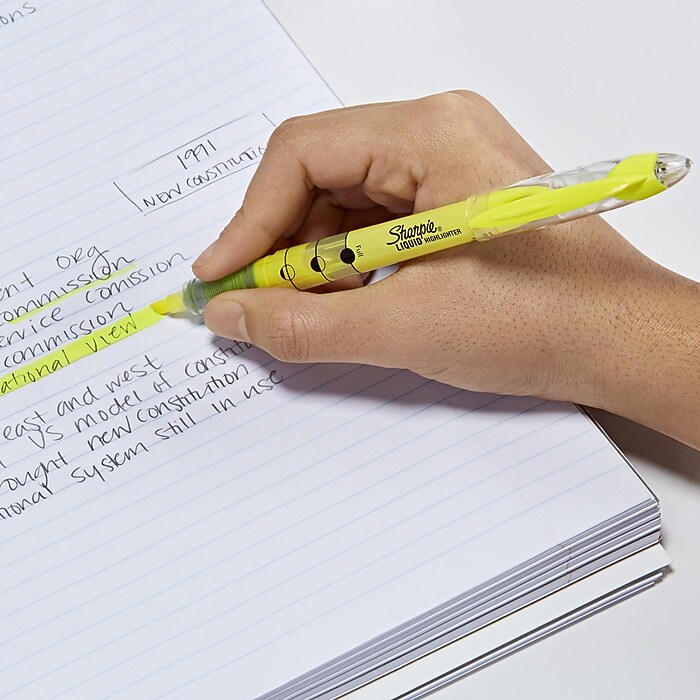 ons
1991
NEW CONSTITUTIO
ent org
commission
ervice comission
commission
ational view
east and west
US's model of constitu
ought new constitution
ional system still in use
Sharpie®
LIQUID HIGHLIGHTER
Full